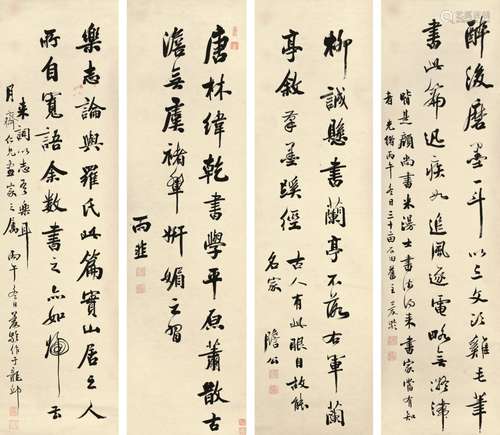 醉後磨墨一斗以三文雞毛筆
書此篇迅疾如追風逐電略無凝滯
皆是顏尚書米書法得來書家當有知
者光緒丙午冬日三十二亩石田舊主
柳誠懸書蘭亭不落右軍蘭
亭敘筆墨蹊徑
古人有此眼目故能
名家
瞻公
唐林緯乾書學平原蕭散古
澹無虞褚輩妍媚之習
雨韭
樂志論與羅氏此篇實山居之人
所自寬語余數書之亦如云
來詞以志吾樂耳
月齋仁兄畫家之属 丙午冬日作于龍邱